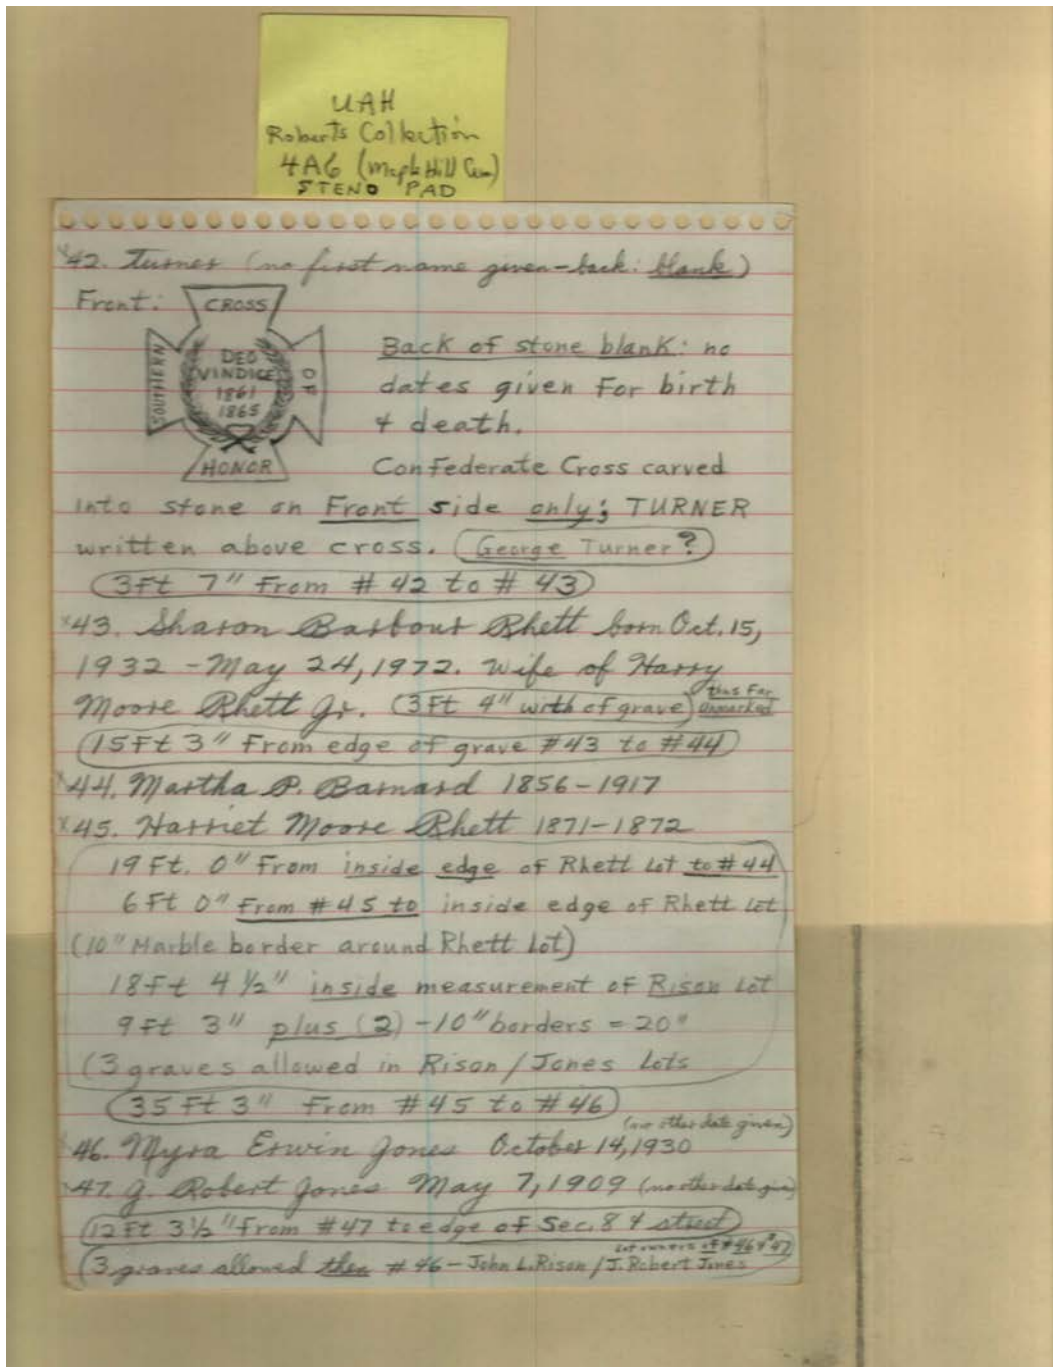 UAH
Roberts Collection
4A6 (Maple Hill Cem)
STENO PAD
x42. Turner (no first name given-back: blank)
Front:
CROSS
SOUTHERN
DEO
VINDICE
1861
1865
OF
HONOR
Back of stone blank: no
dates given For birth
& death.
Confederate Cross carved
into stone on Front side only; TURNER
written above cross. (George Turner?)
(3Ft 7" From # 42 to # 43)
x43. Sharon Barbour Rhett born Oct. 15,
1932 - May 24, 1972. Wife of Harry
Moore Rhett Jr. (3Ft 4" width of grave) thus Far
unmarked
(15Ft 3" From edge of grave #43 to #44)
x44. Martha P. Barnard 1856-1917
x45. Harriet Moore Rhett 1871-1872
19 Ft. 0" From inside edge of Rhett Lot to # 44
6 Ft 0" From # 45 to inside edge of Rhett Lot
(10" Marble border around Rhett Lot)
18Ft 4 1/2" inside measurement of Rison Lot
9 Ft 3" plus (2) -10" borders = 20"
(3 graves allowed in Rison / Jones Lots
(35 Ft 3" From #45 to #46)
(no other date given)
46. Myra Erwin Jones October 14, 1930
x47. J. Robert Jones May 7, 1909 (no other date given)
(12Ft 3 1/2" From #47 to edge of Sec. 8 & street)
Lot owners of #46 & #47
(3 graves allowed then #46 - John L. Rison / J. Robert Jones